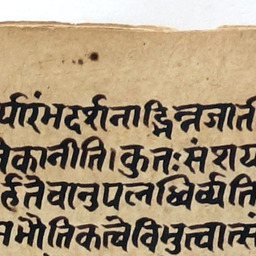 र्यारंभदर्शनाद्भिन्नजाती
कानीति। कुतः संशय
र्हतेवानुपलब्धिर्व्यति
भौतिकत्वेविभुत्वात्सं